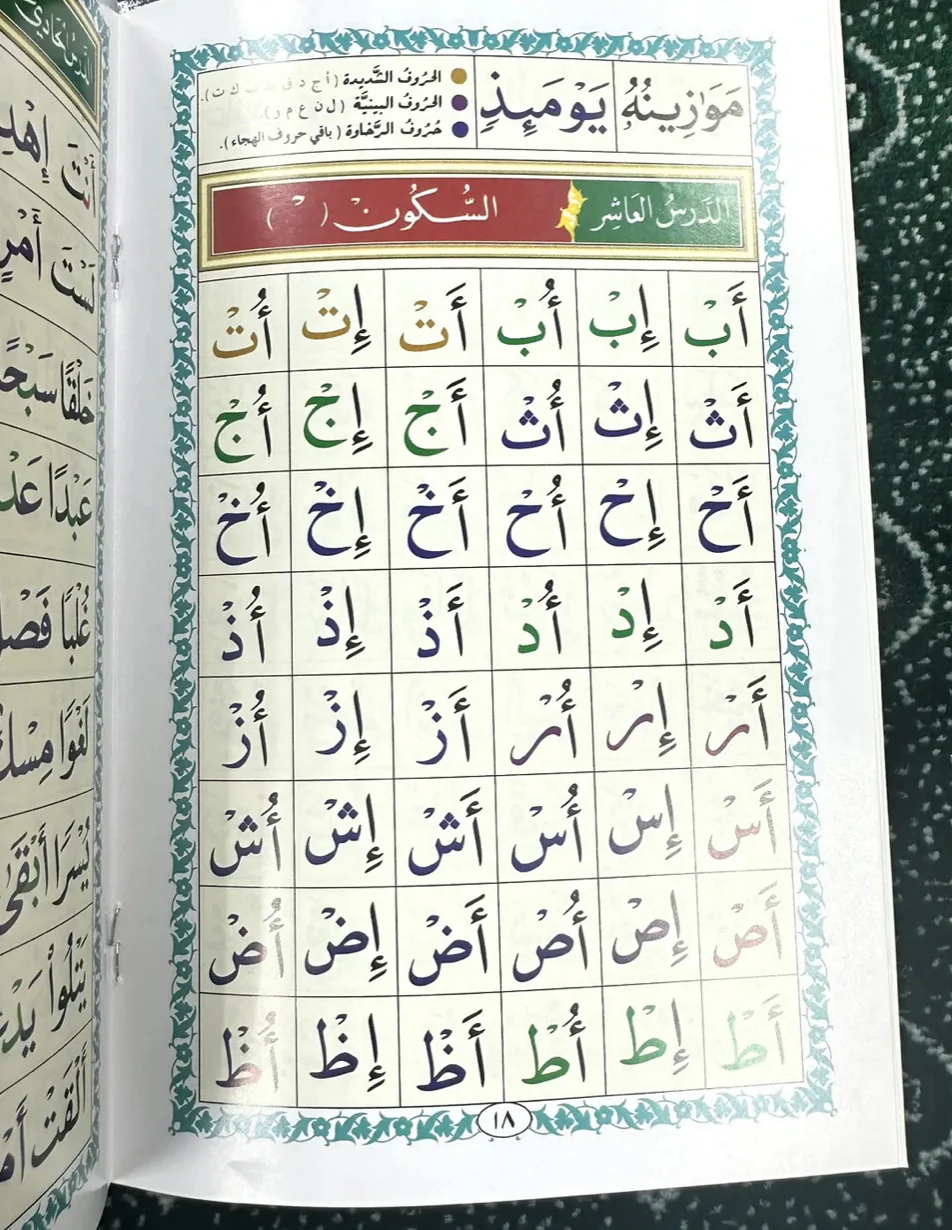 مَوَٰزِينُهُۥ يَوْمَئِذٍ
الحُروفُ الشَّديدة ( أ ج د ق ط ب ك ت ).
الحُروفُ البينيَّة ( ل ن ع م ر ).
حُروفُ الرَّخاوة ( باقي حروف الهجاء ).
الدَرسُ العَاشِر السُّكُونْ ( ْ )
أَبْ إِبْ أُبْ أَتْ إِتْ أُتْ
أَثْ إِثْ أُثْ أَجْ إِجْ أُجْ
أَحْ إِحْ أُحْ أَخْ إِخْ أُخْ
أَدْ إِدْ أُدْ أَذْ إِذْ أُذْ
أَرْ إِرْ أُرْ أَزْ إِزْ أُزْ
أَسْ إِسْ أُسْ أَشْ إِشْ أُشْ
أَصْ إِصْ أُصْ أَضْ إِضْ أُضْ
أَطْ إِطْ أُطْ أَظْ إِظْ أُظْ
١٨
الدَرسُ الحَادي
أَنْتَ
لَسْتَ أَمْرٍ
خَلْقًا
عَبْدًا
غُلْبًا
لَغْوًا
يُسْرًا أَبْقَىٰ
يَتْلُوا۟
أَلْقَتْ